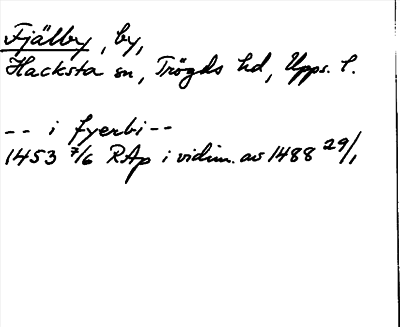 Fjälby, by,
Hacksta sn, Trögds hd, Upps. l.
-- i fyerbi --
1453 7/6 RAp i vidim. av 1488 29/1